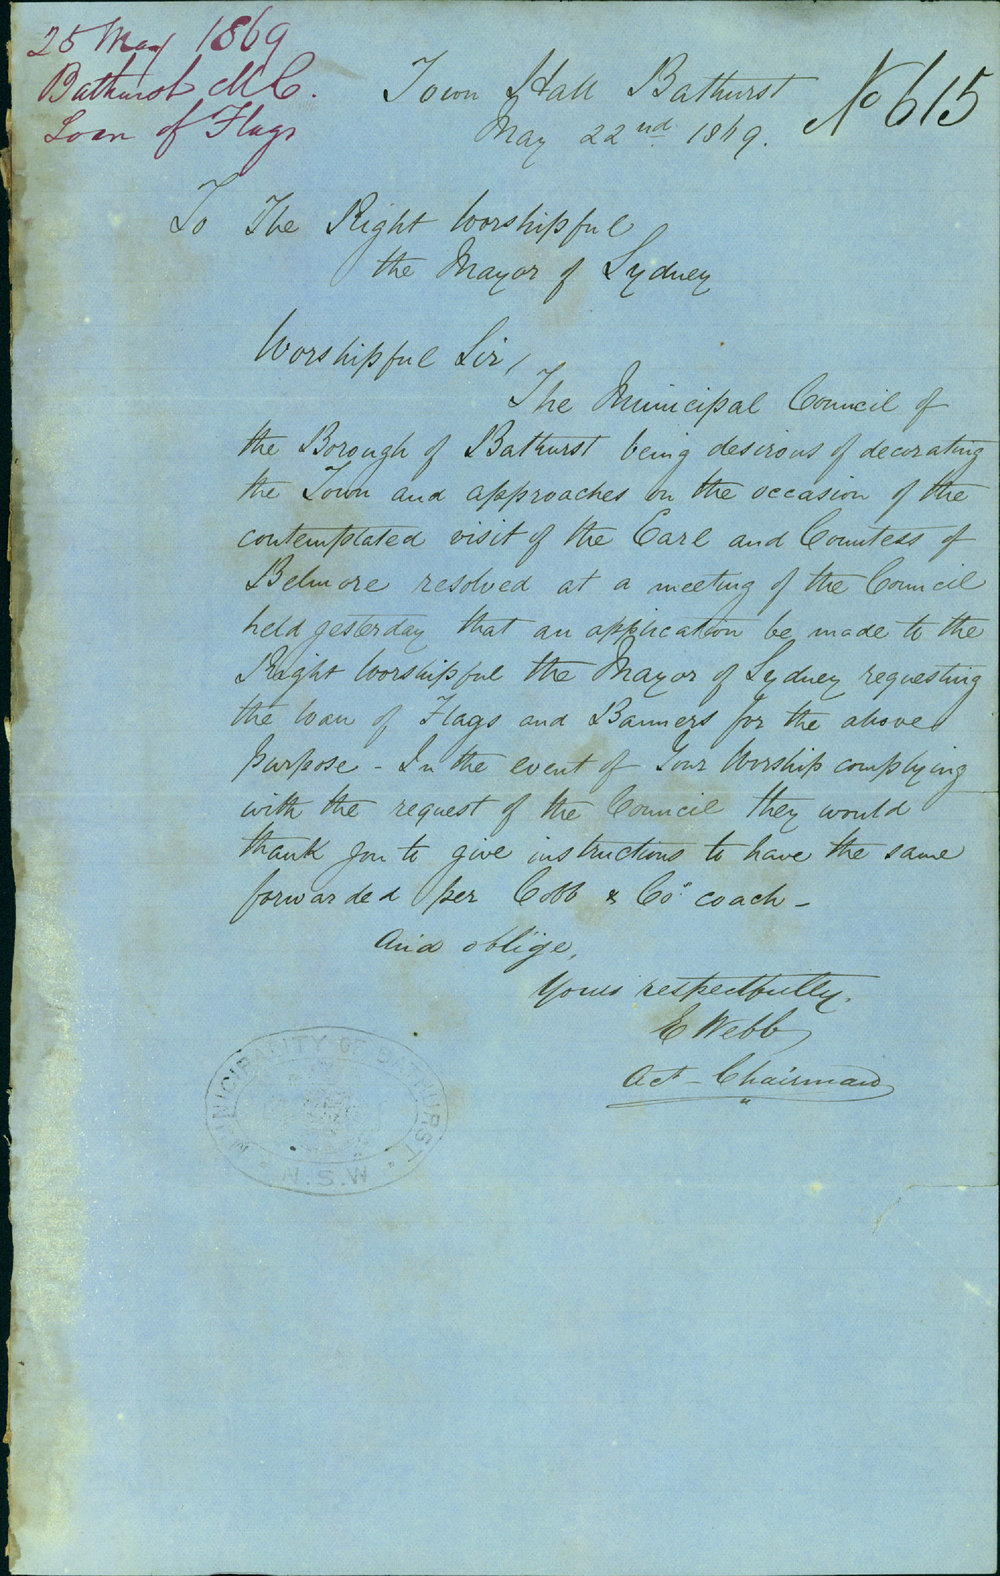 25 May 1869
Bathurst M.C.
Loan of Flags
No 615
Town Hall Bathurst
May 22nd 1869.
To The Right Worshipful
the Mayor of Sydney
Worshipful Sir,
The Municipal Council of
the Borough of Bathurst being desirous of decorating
the Town and approaches on the occasion of the
contemplated visit of the Earl and Countess of
Belmore resolved at a meeting of the Council
held yesterday that an application be made to the
Right Worshipful the Mayor of Sydney requesting
the loan of Flags and Banners for the above
purpose - In the event of Your Worship complying
with the request of the Council they would
thank you to give instructions to have the same
forwarded per Cobb & Co's coach -
And oblige,
Yours respectfully.
E Webb
Act - Chairman
MUNICIPALITY OF BATHURST
N.S.W